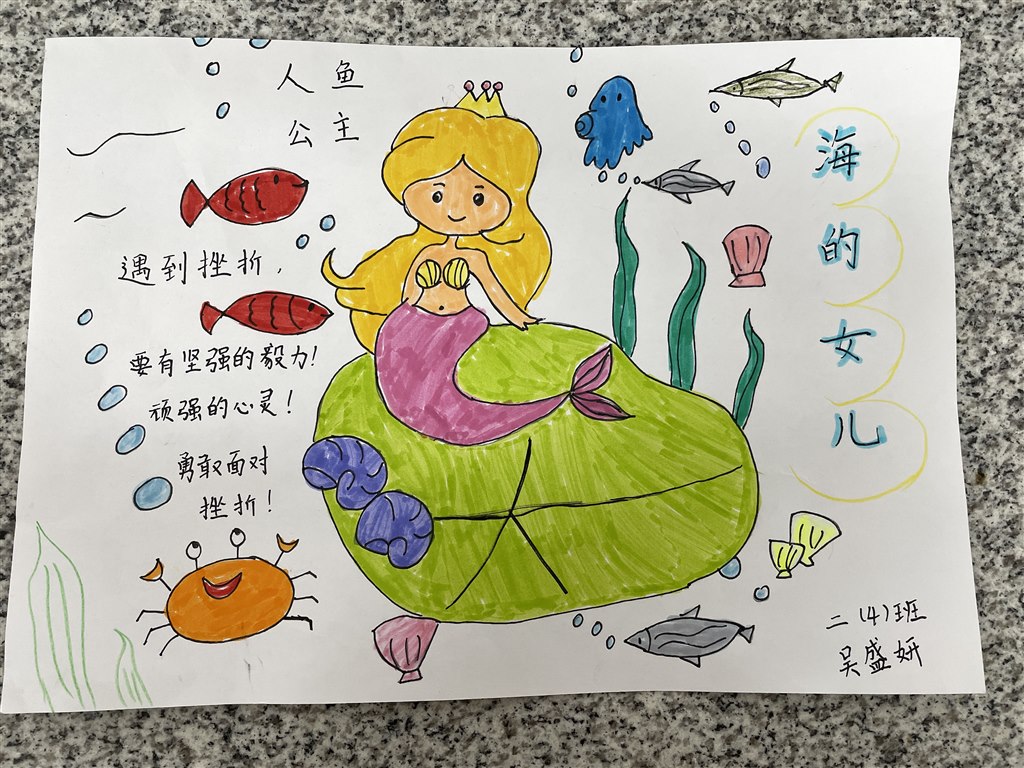 人鱼
公主
海的女儿
遇到挫折,
要有坚强的毅力!
顽强的心灵!
勇敢面对
挫折!
二(4)班
吴盛妍